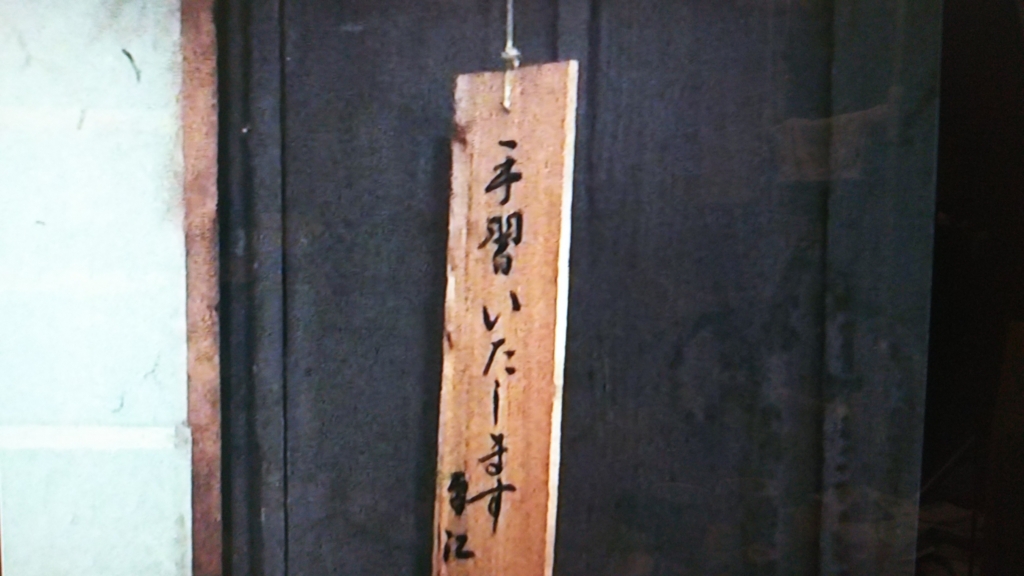 手習いたします
江